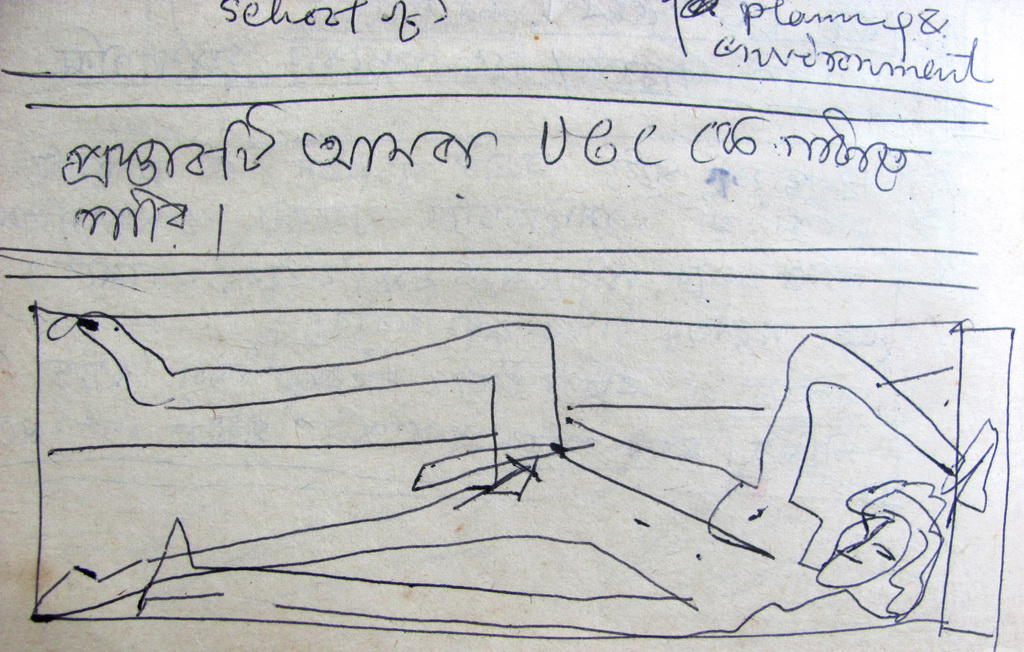 School of
planning &
environment
প্রস্তাবটি আমরা UGC কে পাঠাতে
পারি।